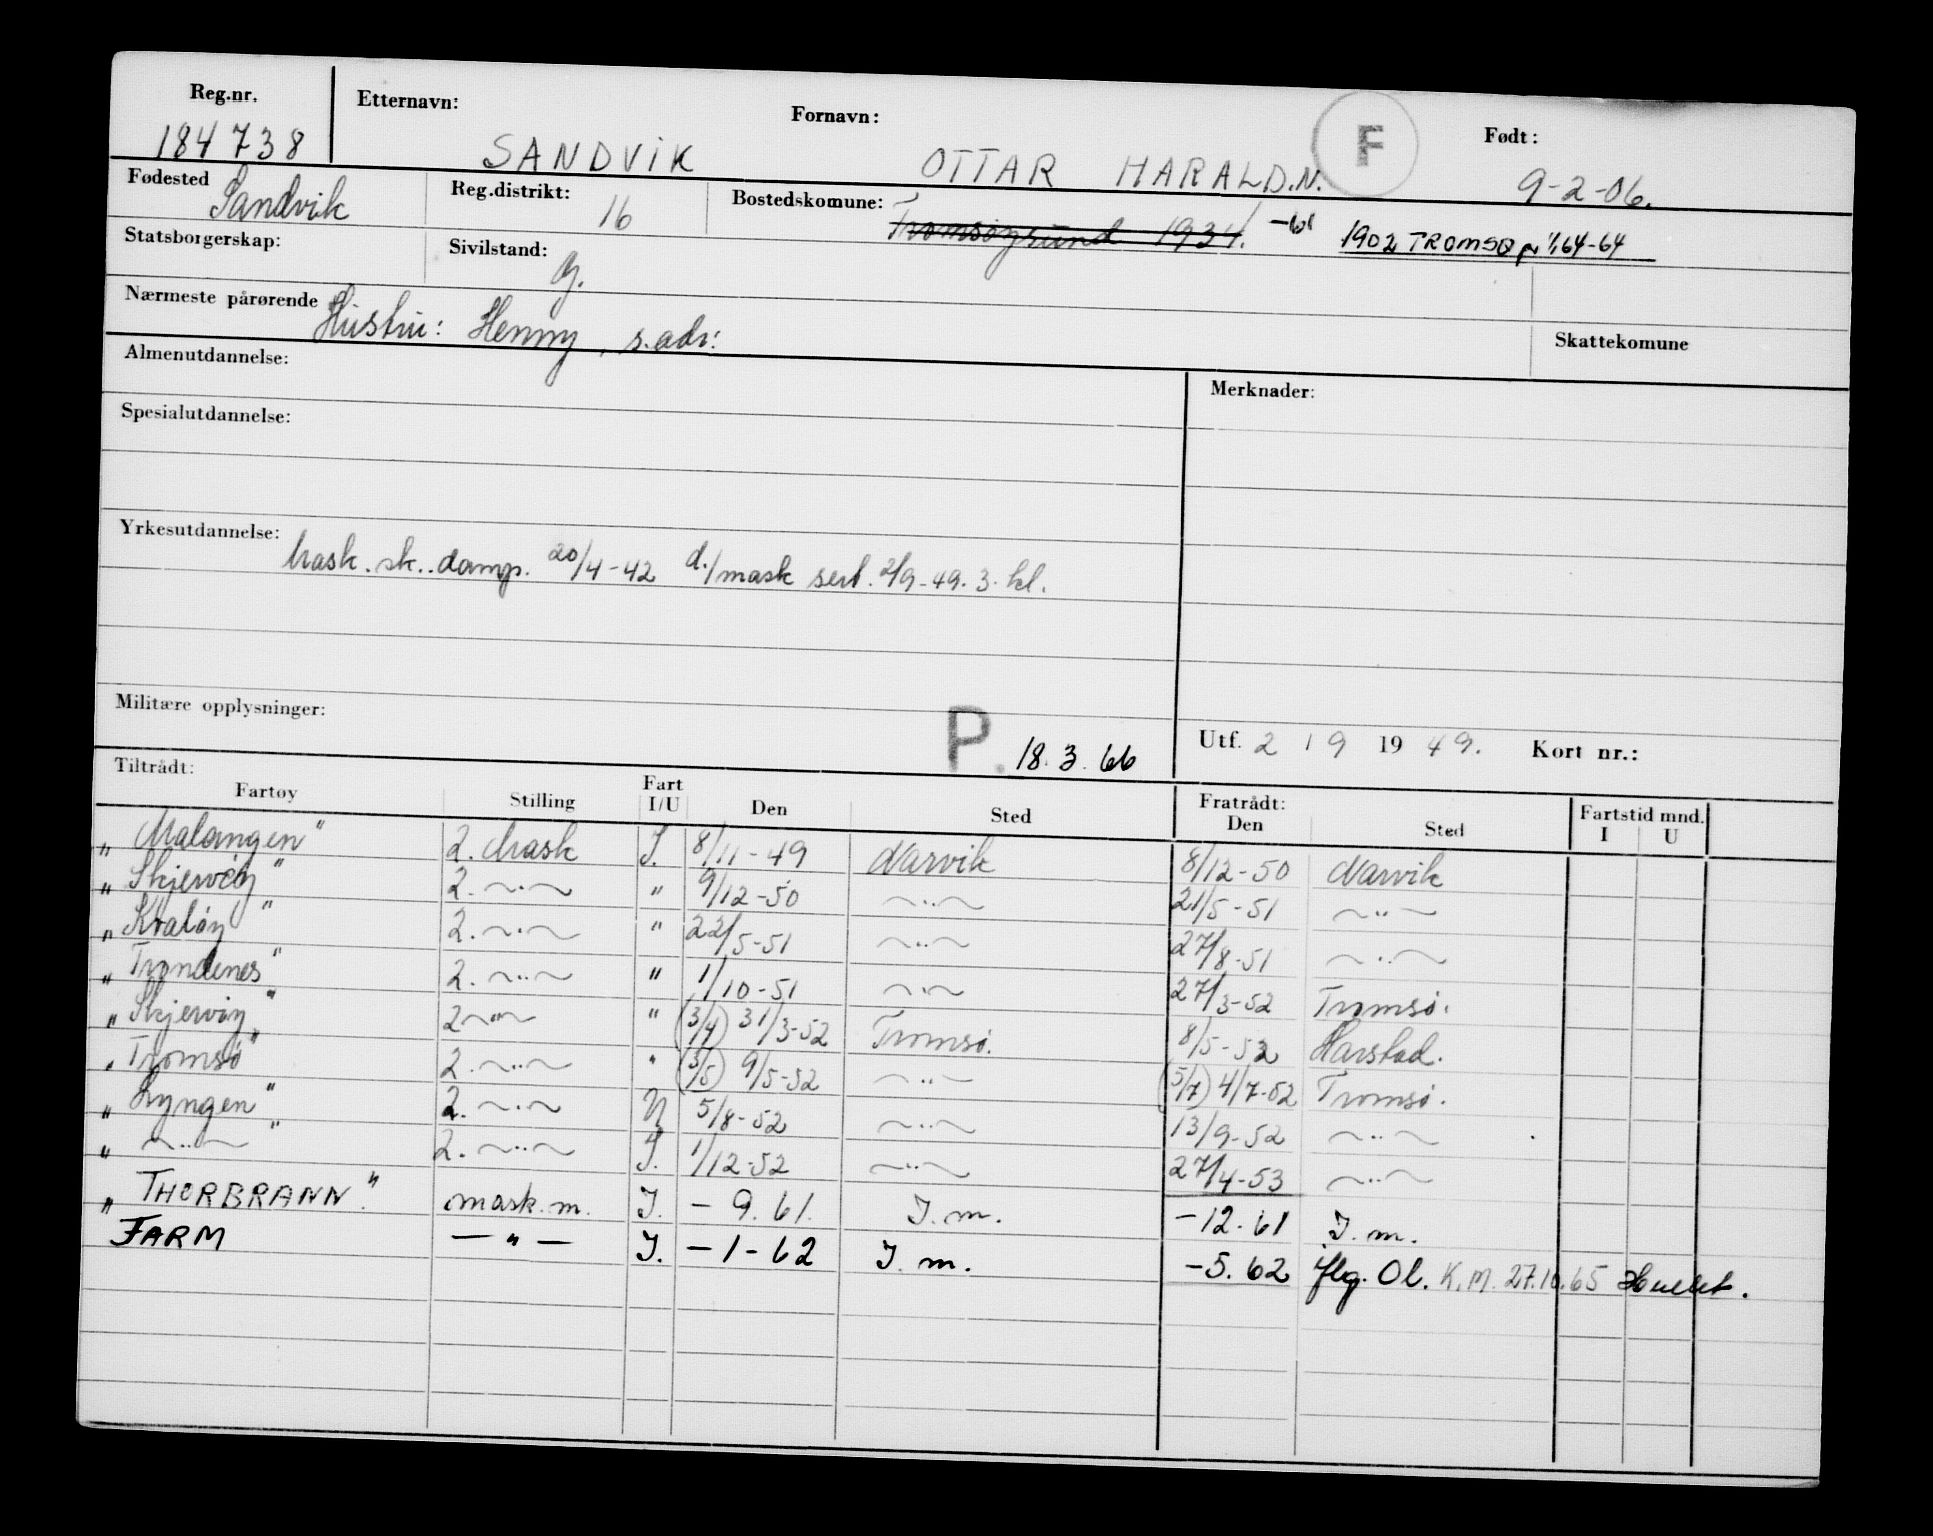 Reg.nr. Etternavn: Fornavn: F Født:
184738 SANDVIK OTTAR HARALD.N. 9-2-06.
Fødested Sandvik Reg.distrikt: 16 Bostedskomune: Tromsøysund 1934. -61 1902 TROMSØ pr 1/1 64-64
Statsborgerskap: Sivilstand: g.
Nærmeste pårørende Hustru: Henny, s.adr:
Skattekomune
Almenutdannelse: Merknader:
Spesialutdannelse:
Yrkesutdannelse: Mask.sk..damp. 20/4-42 d./mask sert. 2/9-49. 3. kl.
Militære opplysninger: P. 18.3.66 Utf. 2 / 9 19 49. Kort nr.:
Tiltrådt: Fratrådt: Fartstid mnd.
Fartøy Stilling Fart I/U Den Sted Den Sted I U
„ Malangen" 2. Mask I. 8/11-49 Narvik 8/12-50 Narvik
„ Skjervøy" 2. ~..~ " 9/12-50 ~..~ 21/5-51 ~..~
„ Kvaløy" 2. ~..~ " 22/5-51 ~..~ 27/8-51 ~..~
„ Trondenes" 2. ~..~ " 1/10-51 ~..~ 27/3-52 Tromsø.
„ Skjervøy" 2 ~..~ " (3/4) 31/3-52 Tromsø. 8/5-52 Harstad.
„ Tromsø" 2. ~..~ " (3/5) 9/5-52 ~..~ (5/7) 4/7-52 Tromsø.
„ Lyngen" 2. ~..~ U 5/8-52 ~..~ 13/9-52 ~..~
„ ~..~ " 2. ~..~ I. 1/12-52 ~..~ 27/4-53 ~..~
„ THORBRANN." mask.m. I. - 9.61. I.m. -12.61 I.m.
FARM — " — I. -1-62 I.m. -5.62 iflg. Ol. K.M. 27.10.65